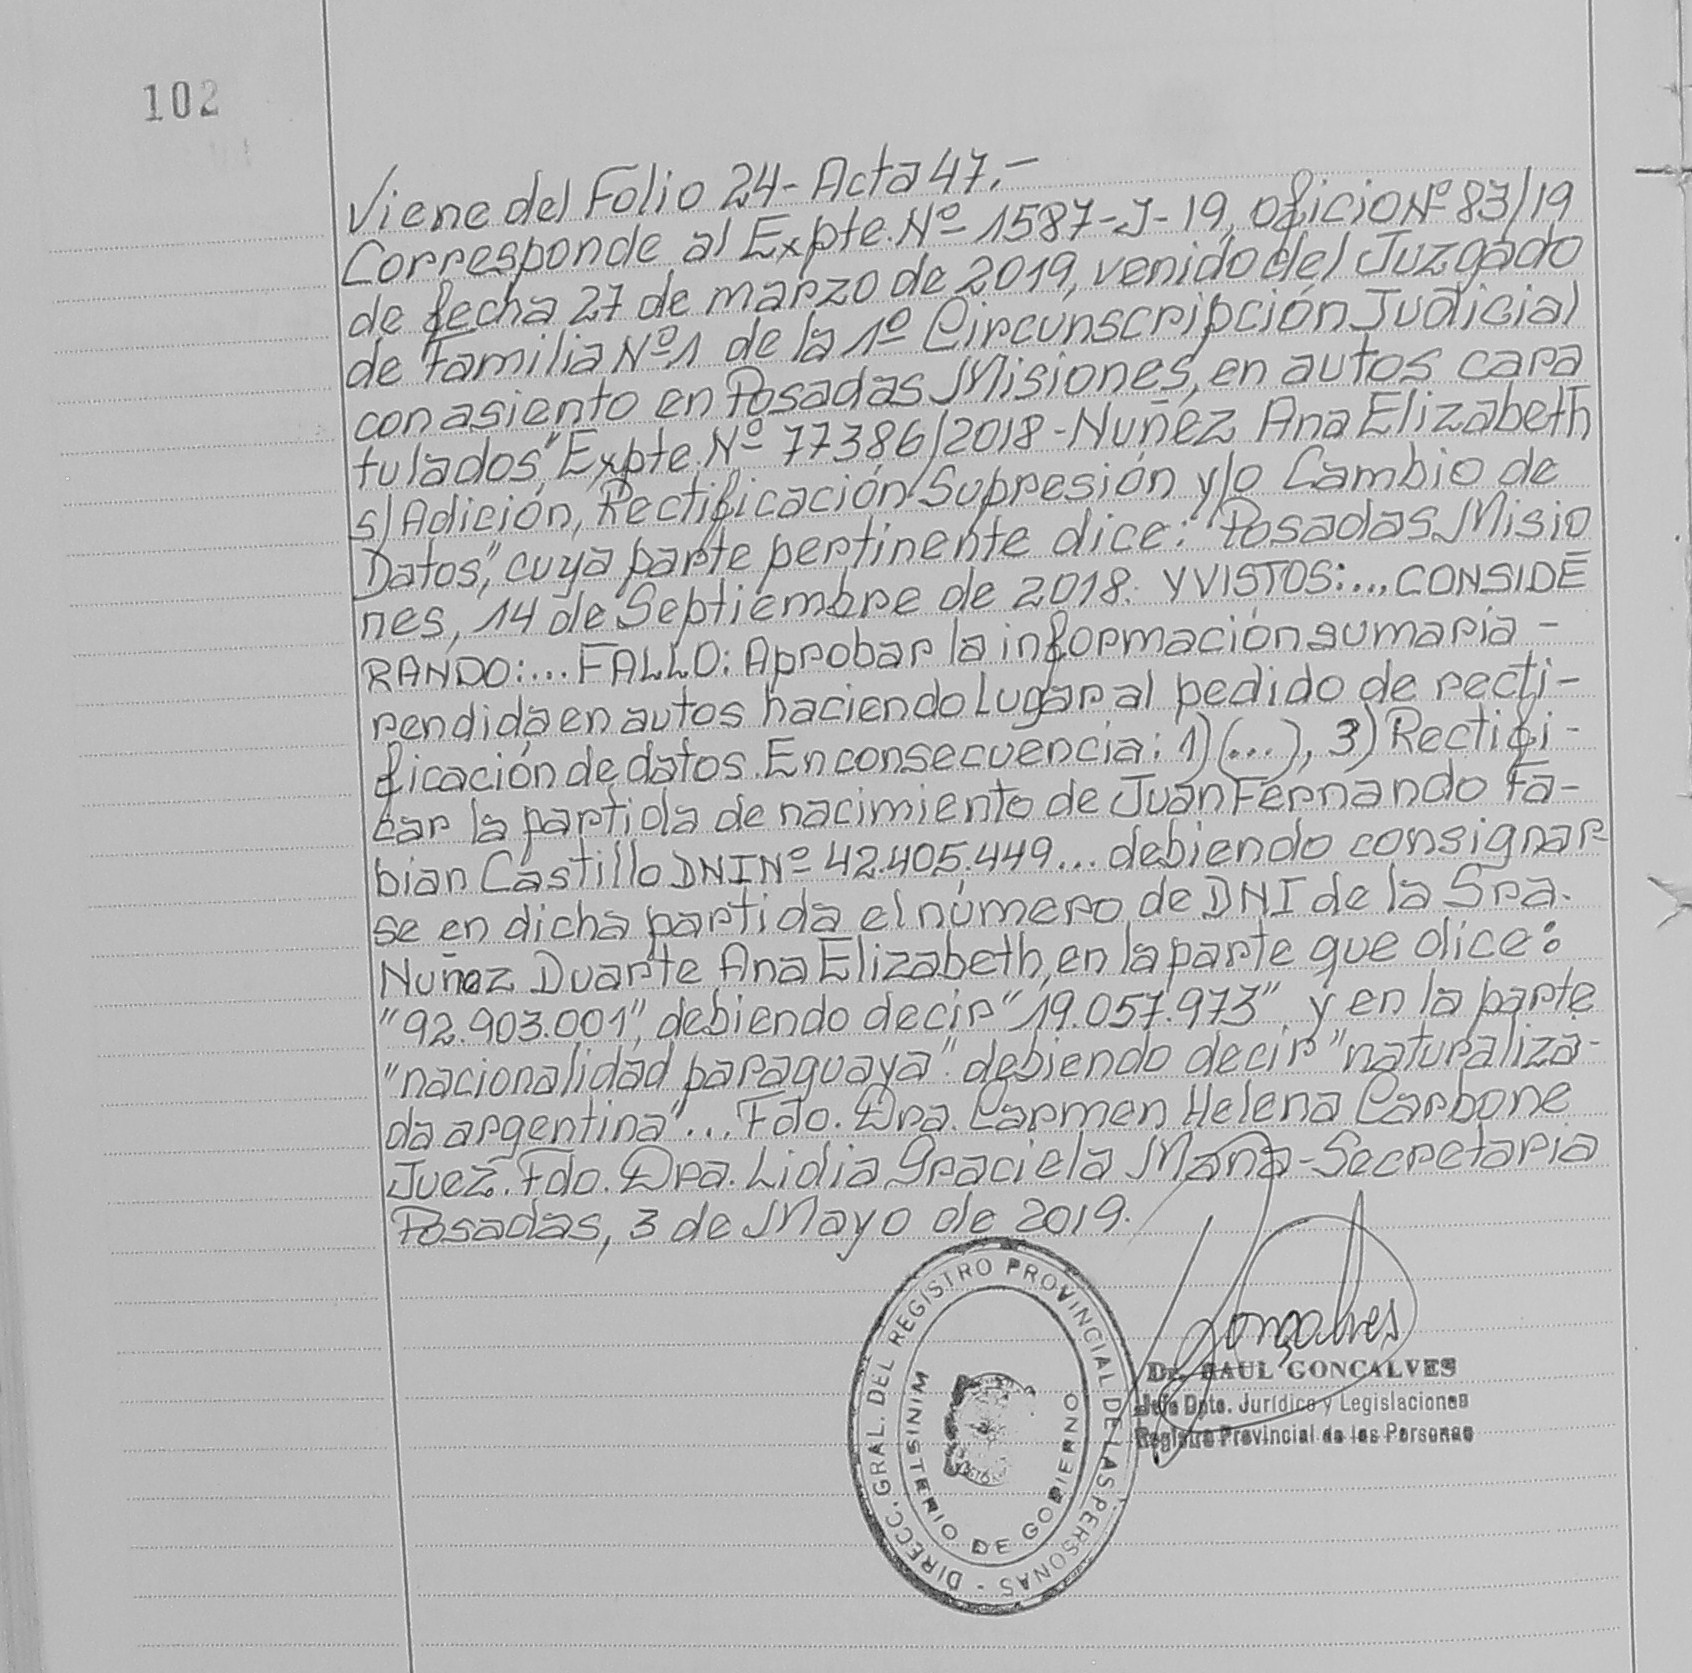 102
Viene del Folio 24-Acta 47.-
Corresponde al Expte. Nº 1587-J-19, Oficio Nº 83/19
de fecha 27 de marzo de 2019, venido del Juzgado
de Familia Nº 1 de la 1º Circunscripción Judicial
con asiento en Posadas Misiones, en autos cara
tulados, "Expte. Nº 77386/2018-Nuñez Ana Elizabeth
s/Adición, Rectificación Supresión y/o Cambio de
Datos", cuya parte pertinente dice: "Posadas, Misio
nes, 14 de Septiembre de 2018. Y VISTOS:... CONSIDE
RANDO:... FALLO: Aprobar la información sumaria -
rendida en autos haciendo Lugar al pedido de recti-
ficación de datos. En consecuencia: 1) (...), 3) Rectifi-
car la partida de nacimiento de Juan Fernando Fa-
bian Castillo DNI Nº 42.405.449... debiendo consignar
se en dicha partida el número de DNI de la Sra.
Nuñez Duarte Ana Elizabeth, en la parte que dice:
"92.903.001", debiendo decir "19.057.973" y en la parte
"nacionalidad paraguaya" debiendo decir "naturaliza-
da argentina"... Fdo. Dra. Carmen Helena Carbone
Juez. Fdo. Dra. Lidia Graciela Maña-Secretaria
Posadas, 3 de Mayo de 2019.
DIRECC. GRAL. DEL REGISTRO PROVINCIAL DE LAS PERSONAS -
MINISTERIO DE GOBIERNO
Gonçalves
Dr. RAUL GONCALVES
Jefe Dpto. Jurídico y Legislaciones
Registro Provincial de las Personas